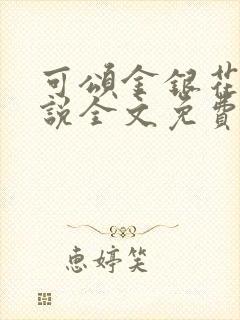 可頌金銀花
說全文免費
恵婷笑